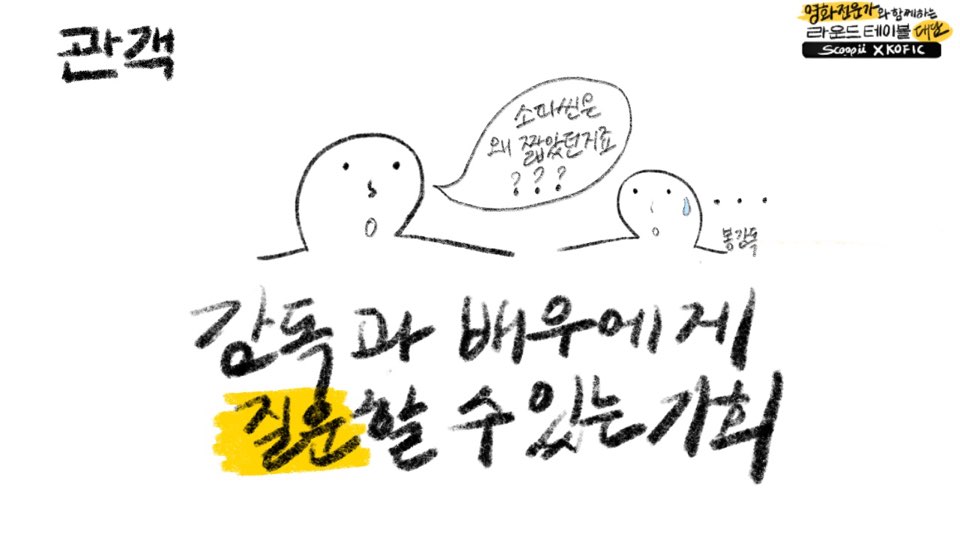 관객
영화전문가와 함께하는
라운드 테이블 대담
Scoopii X KOFIC
소파씬은
왜 짧았던지죠
? ? ?
. . . .
봉감독
감독과 배우에게
질문할 수 있는 기회